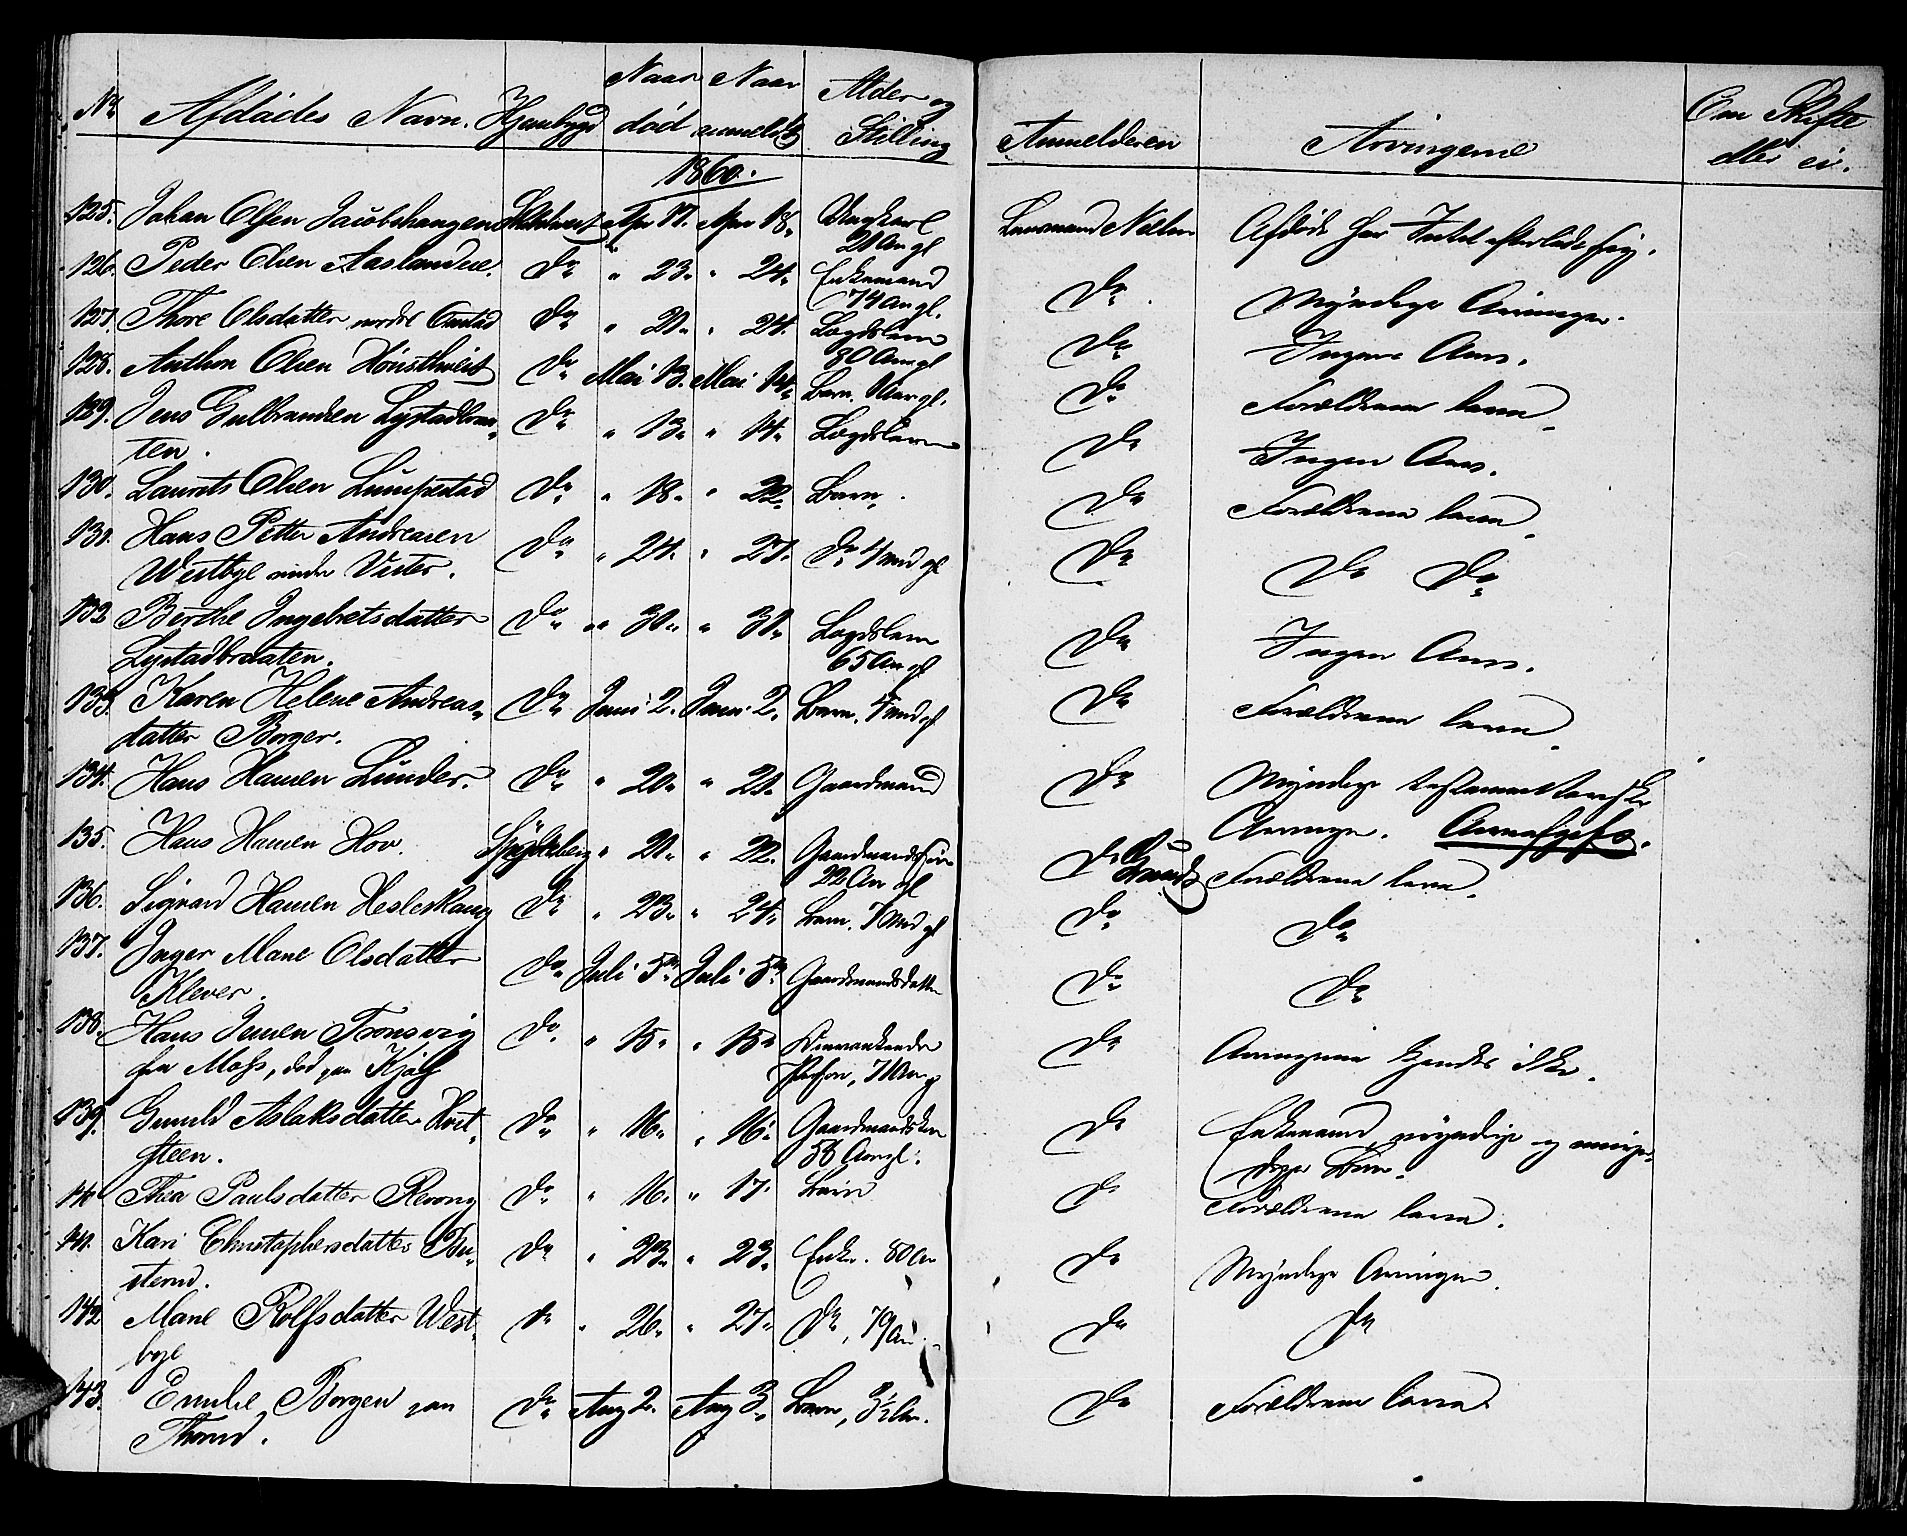 No. Afdødes Navn. Hjembygd Naar død Naar anmeldt Alder og Stilling Anmelderen Arvingerne Om Skifte eller ei.
1860.
125. Johan Olsen Jacobshaugen Apr 17. Apr 18. Ungkarl Lensmand Afdøde har Intet efterladt sig.
21 Aar gl
126. Peder Olsen Aaslandeie. Do " 23. " 24. Enkemand Do Myndige Arvinger.
74 Aar gl.
127. Thore Olsdatter nordre Onstad Do " 21. " 24. Lægdslem Do Ingen Arv.
80 Aar gl
128. Anthon Olsen Hønsthveit Do Mai 13. Mai 14. Barn, Do Forældrene leve
129. Jens Gulbrandsen Lystadbraa- Do " 13. " 14. Lægdslem Do Ingen Arv.
ten.
130. Laurits Olsen Lumpestad Do " 18. " 22. Barn. Do Forældrene leve
131. Hans Petter Andreasen Do " 24. " 27. Do 4 Mnd gl Do Do Do
Westbye under Vister.
132 Berthe Ingebretsdatter Do " 30. " 31. Lægdslem Do Ingen Arv.
Lystadbraaten. 65 Aar gl
133. Karen Helene Andreas- Do Juni 2. Juni 2. Barn. Mnd gl Do Forældrene leve
datter Borger.
134. Hans Hansen Lunder. Do " 20. " 21. Gaardmand Do Myndige testamentariske
Arvinger. Arveafgift.
135. Hans Hansen Hov. Spydeberg " 21. " 22. Gaardmandssøn Do Forældrene leve.
22 Aar gl
136. Sigvard Hansen Hesleskaug Do " 23. " 24. Barn. 7 Mnd gl Do Do
137. Inger Marie Olsdatter Do Juli 5. Juli 5. Gaardmandsdatter Do Do
Klever.
138. Hans Jensen Tronsvig Do " 15. " 15. Omvankende Do Arvingerne kjendes ikke.
fra Moss, død paa Kjølf Person, 71 Aar
139. Gunild Aslaksdatter Hvit- Do " 16. " 16. Gaardmandskone Do Enkemand, myndige og umyn-
steen. 58 Aar gl. dige Børn.
140. Thea Paulsdatter Revoug Do " 16. " 17. Barn Do Forældrene leve.
141. Kari Christophersdatter Bu- Do " 23. " 23. Enke. 80 Aar Do Myndige Arvinger.
sterud.
142 Marie Rolfsdatter West- Do " 26. " 27. Do, 79 Aar Do Do
bye
143. Emilie Borgen paa Do Aug 2. Aug 3. Barn, 3½ Aar. Do Forældrene leve.
Thorud.